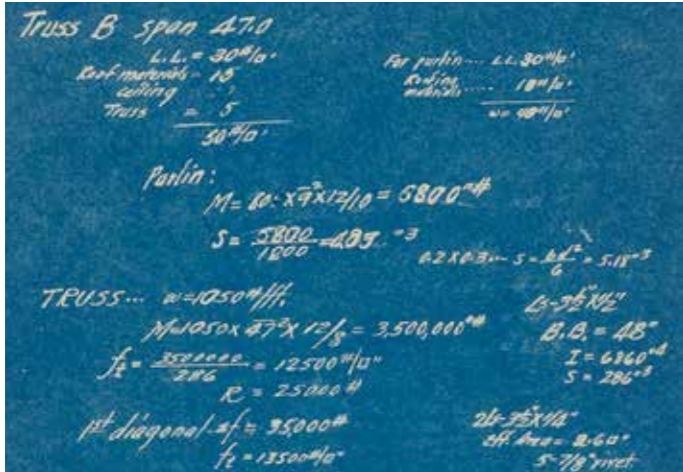 Truss B span 47.0
L.L. = 30#/□'
Roof materials = 15
Ceiling
Truss = 5
50#/□'
For purlin... L.L. 30#/□'
Roofing materials..... 10#/□'
w = 40#/□'
Purlin:
M = 60. x 9² x 12/10 = 5800"#
S = 5800/1800 = "³
S = bd²/6 = 5.18"³
TRUSS... w = 1050#/ft.
M = 1050 x 47² x 12/8 = 3,500,000"#
fₜ = 3500000/286 = 12500#/□"
R = 25000#
Ls-3½"x½"
B.B. = 48"
I = 6860"⁴
S = 286"³
1st diagonal sf = 35,000#
fₜ = 13500#/□"
2Ls-3½"x¼"
eff. Area = 2.60"
5-7/8" rivet